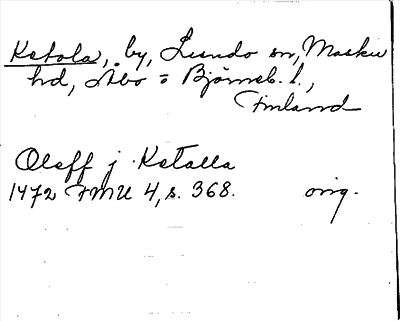 Ketola, by, Lundo sn, Masku
hd, Åbo o Björneb. l.,
Finland
Oleff j Ketalla
1472 FMU 4, s. 368. orig.